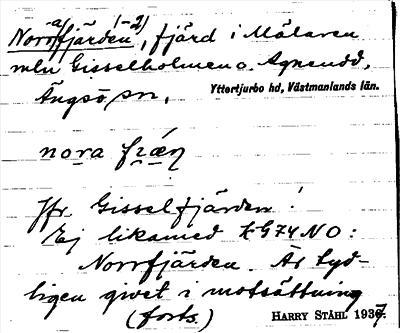 Norrfjärden, fjärd i Mälaren
mln Gisselholmen o. Agnudd,
Ängsö sn,
Yttertjurbo hd, Västmanlands län.
nora fræn
Jfr Gisselfjärden!
Ej likamed KG74NO:
Norrfjärden. Är tyd-
ligen givet i motsättning
(forts.)
HARRY STÅHL 1937.